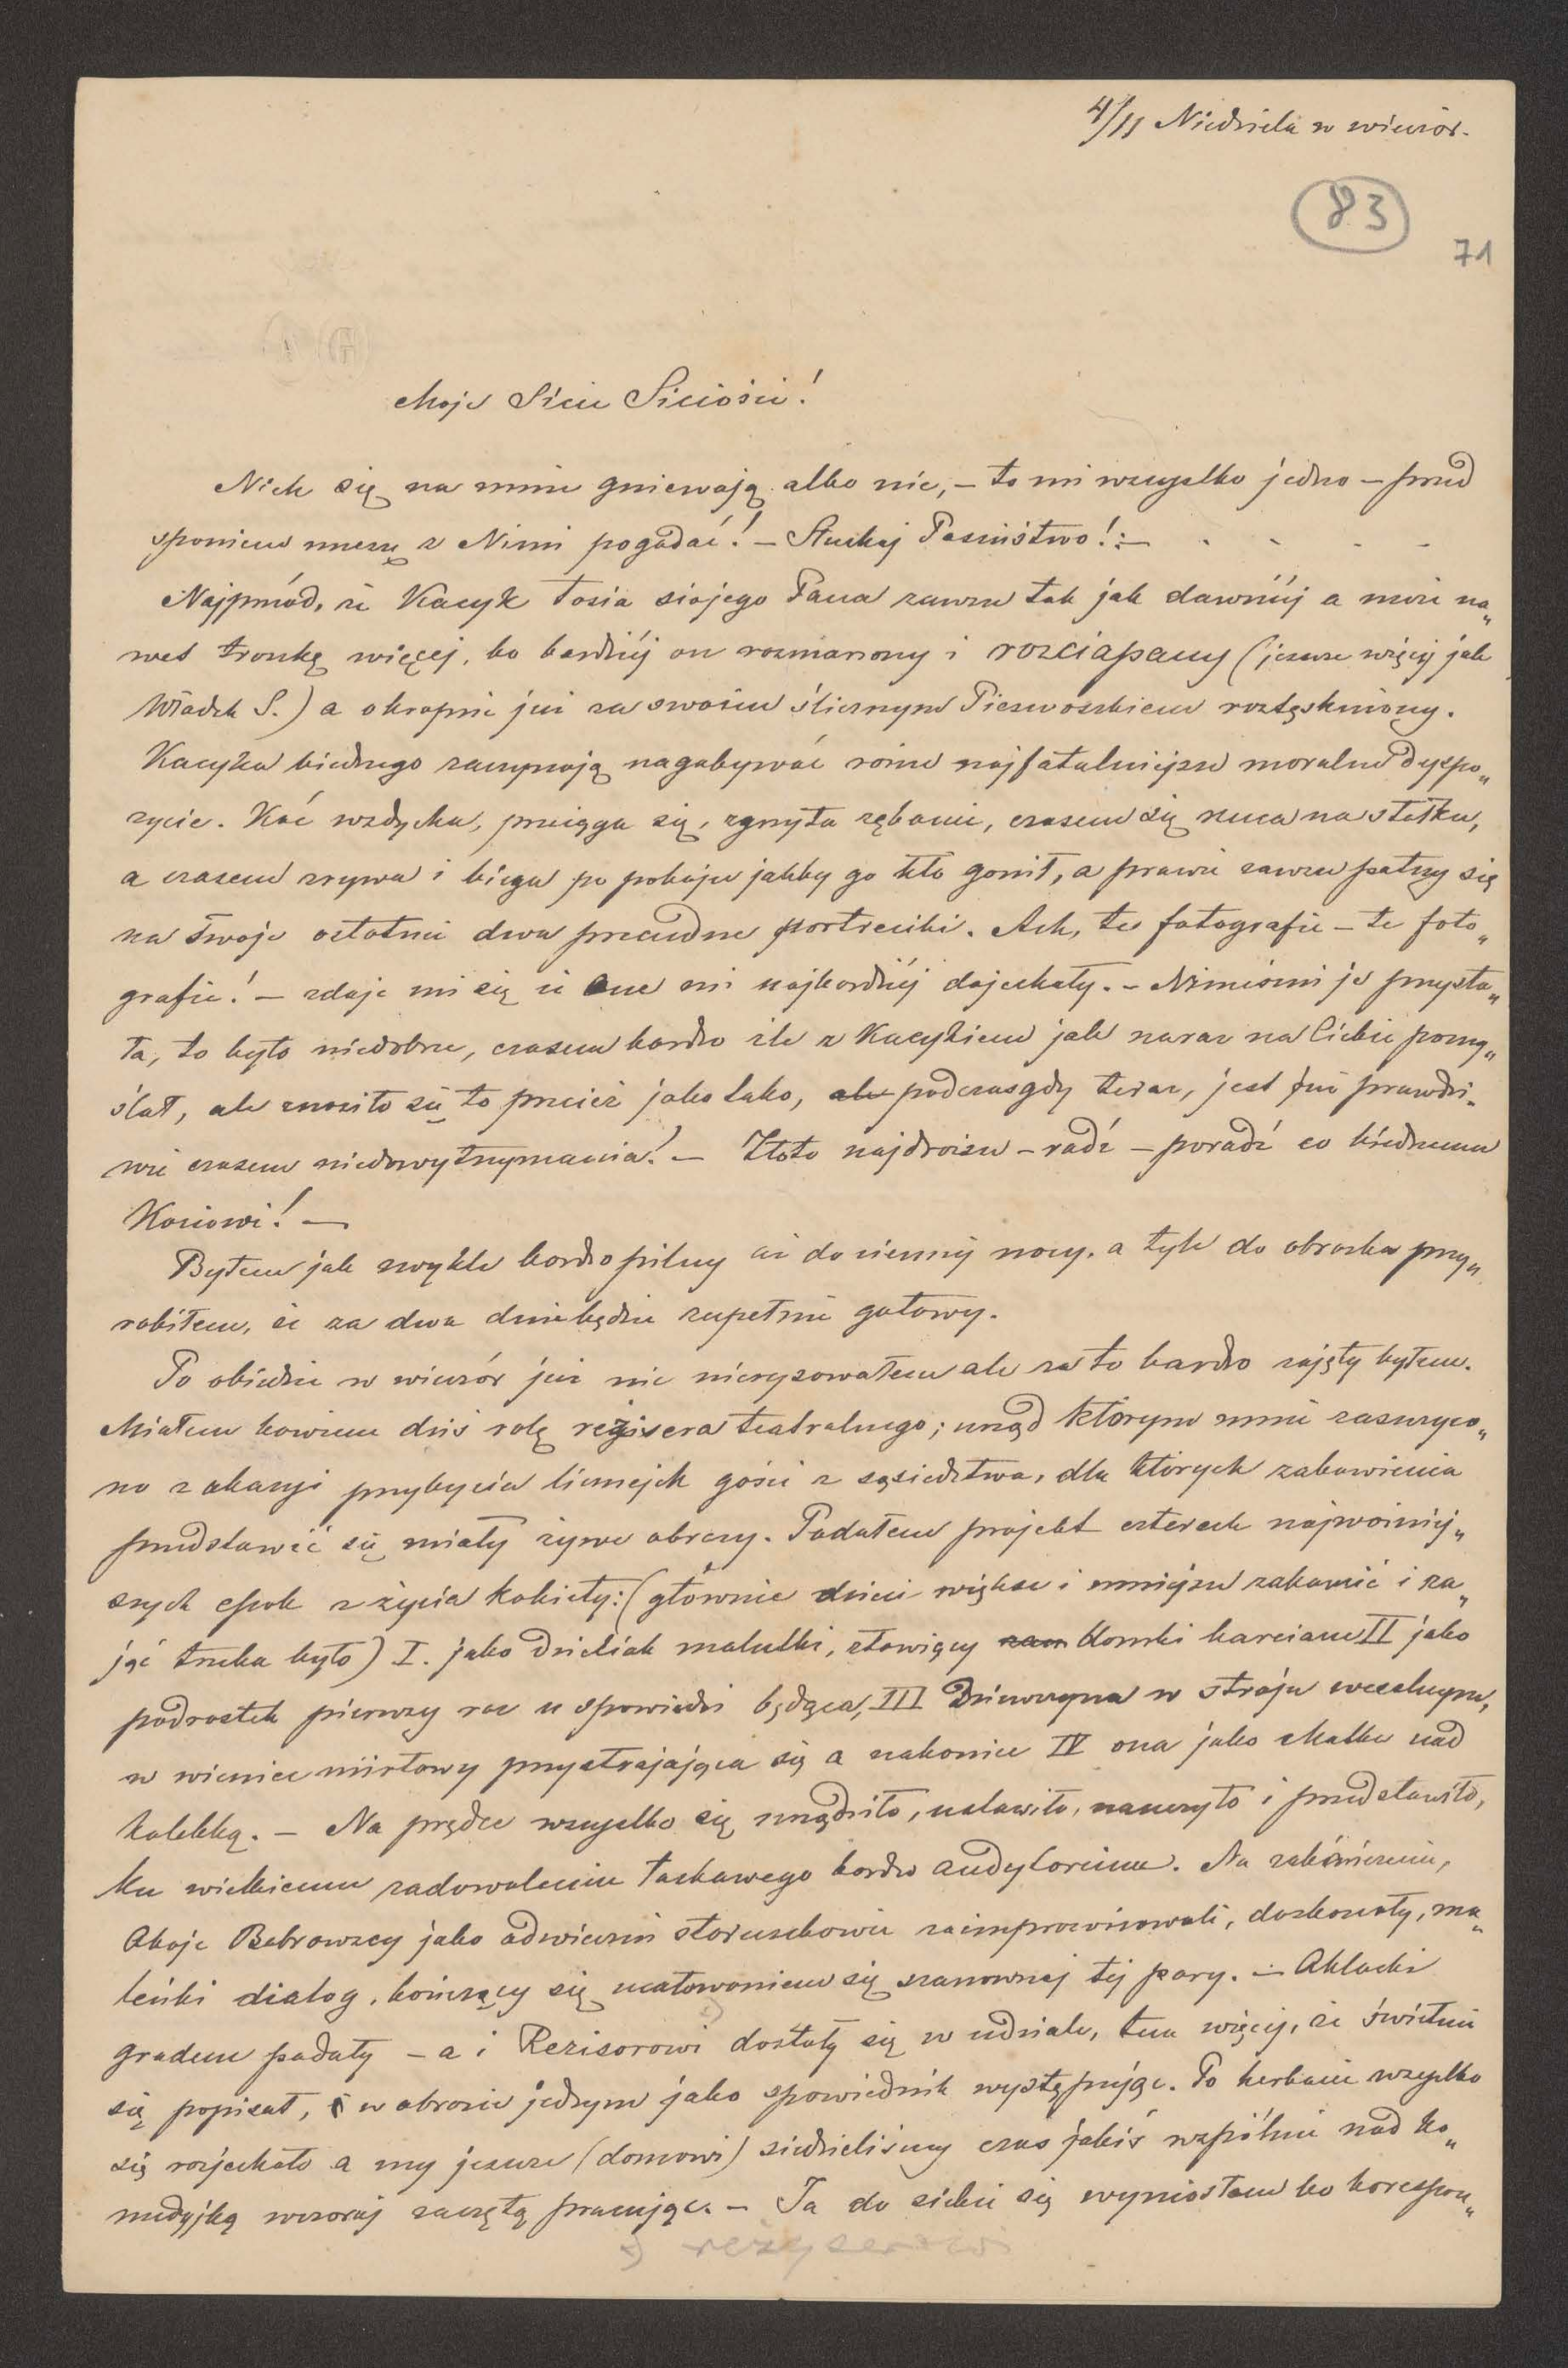 4/11 Niedziela w wieczór.
83
71
Moje Sicie Siciości!
Niech się na mnie gniewają albo nie, – to mi wszystko jedno – przed
spaniem muszę z Nimi pogadać! – Słuchaj Pasiństwo!: –
Najprzód, że Kacyk łosia siojego Pana zawsze tak jak dawniéj a może na„
wet troszkę więcej, bo bardziéj on rozmarzony i rozciapany (jeszcze więcéj jak
Władzk S.) a okropnie już za swoim ślicznym Pieszczoszkiem roztęskniony.
Kacyka biednego zaczynają nagabywać różne najfatalniejsze moralne dyspo„
zycie. Kać wzdycha, przeciąga się, zgrzyta zębami, czasem się rzuca na stołku,
a czasem zrywa i biega po pokoju jakby go kto gonił, a prawie zawsze patrzy się
na swoje ostatnie dwa przecudne portreciki. Ach, te fotografie – te foto„
grafie! – zdaje mi się że one mi najbardziéj dojechały. – Nimeś mi je przysła„
ła, to było niedobrze, czasem bardzo źle z Kacykiem jak naraz na Ciebie pomy„
ślał, ale znosiło się to przecież jako tako, ale podczas gdy teraz, jest już prawdzi„
wie czasem niedowytrzymania! – Złoto najdroższe – radź – poradź co biednemu
Kaciowi! –
Byłem jak zwykle bardzo pilny aż do ciemnéj nocy, a tyle do obrazka przy„
robiłem, że za dwa dnie będzie zupełnie gotowy.
Po obiedzie w wieczór już nic nierysowałem ale za to bardzo zajęty byłem.
Miałem bowiem dziś rolę reżisera teatralnego; urząd którym mnie zaszczyco„
no z okazyi przybycia licznych gości z sąsiedztwa, dla których zabawienia
przedstawić się miały żywe obrazy. Podałem projekt czterech najważniej„
szych epok z życia kobiety: (głównie dzieci większe i mniejsze zabawić i za„
jąć trzeba było) I. jako dzieciak malutki, stawiący zam domki karciane II jako
podrostek pierwszy raz u spowiedzi będąca, III Dziewczyna w stroju weselnym,
w wieniec mirtowy przystrajająca się a nakoniec IV ona jako Matka nad
kolebką. – Na prędce wszystko się urządziło, ustawiło, nauczyło i przedstawiło,
ku wielkiemu zadowoleniu łaskawego bardzo audytorium. Na zakończenie,
Oboje Bobrowscy jako odwieczni staruszkowie zaimprowizowali, doskonały, ma„
leńki dialog, kończący się ucałowaniem się szanownej tej pary. – Oklaski
gradem padały – a i Rezisorowi dostały się w udziale, tem więcej, że świetnie
się popisał, w obrazie jednym jako spowiednik występując. Po herbacie wszystko
się rozjechało a my jeszcze (domowi) siedzieliśmy czas jakiś wspólnie nad ko„
medyjką wczoraj zaczętą pracując. – Ja do siebie się wyniosłem bo korespon„
x) reżyserowi